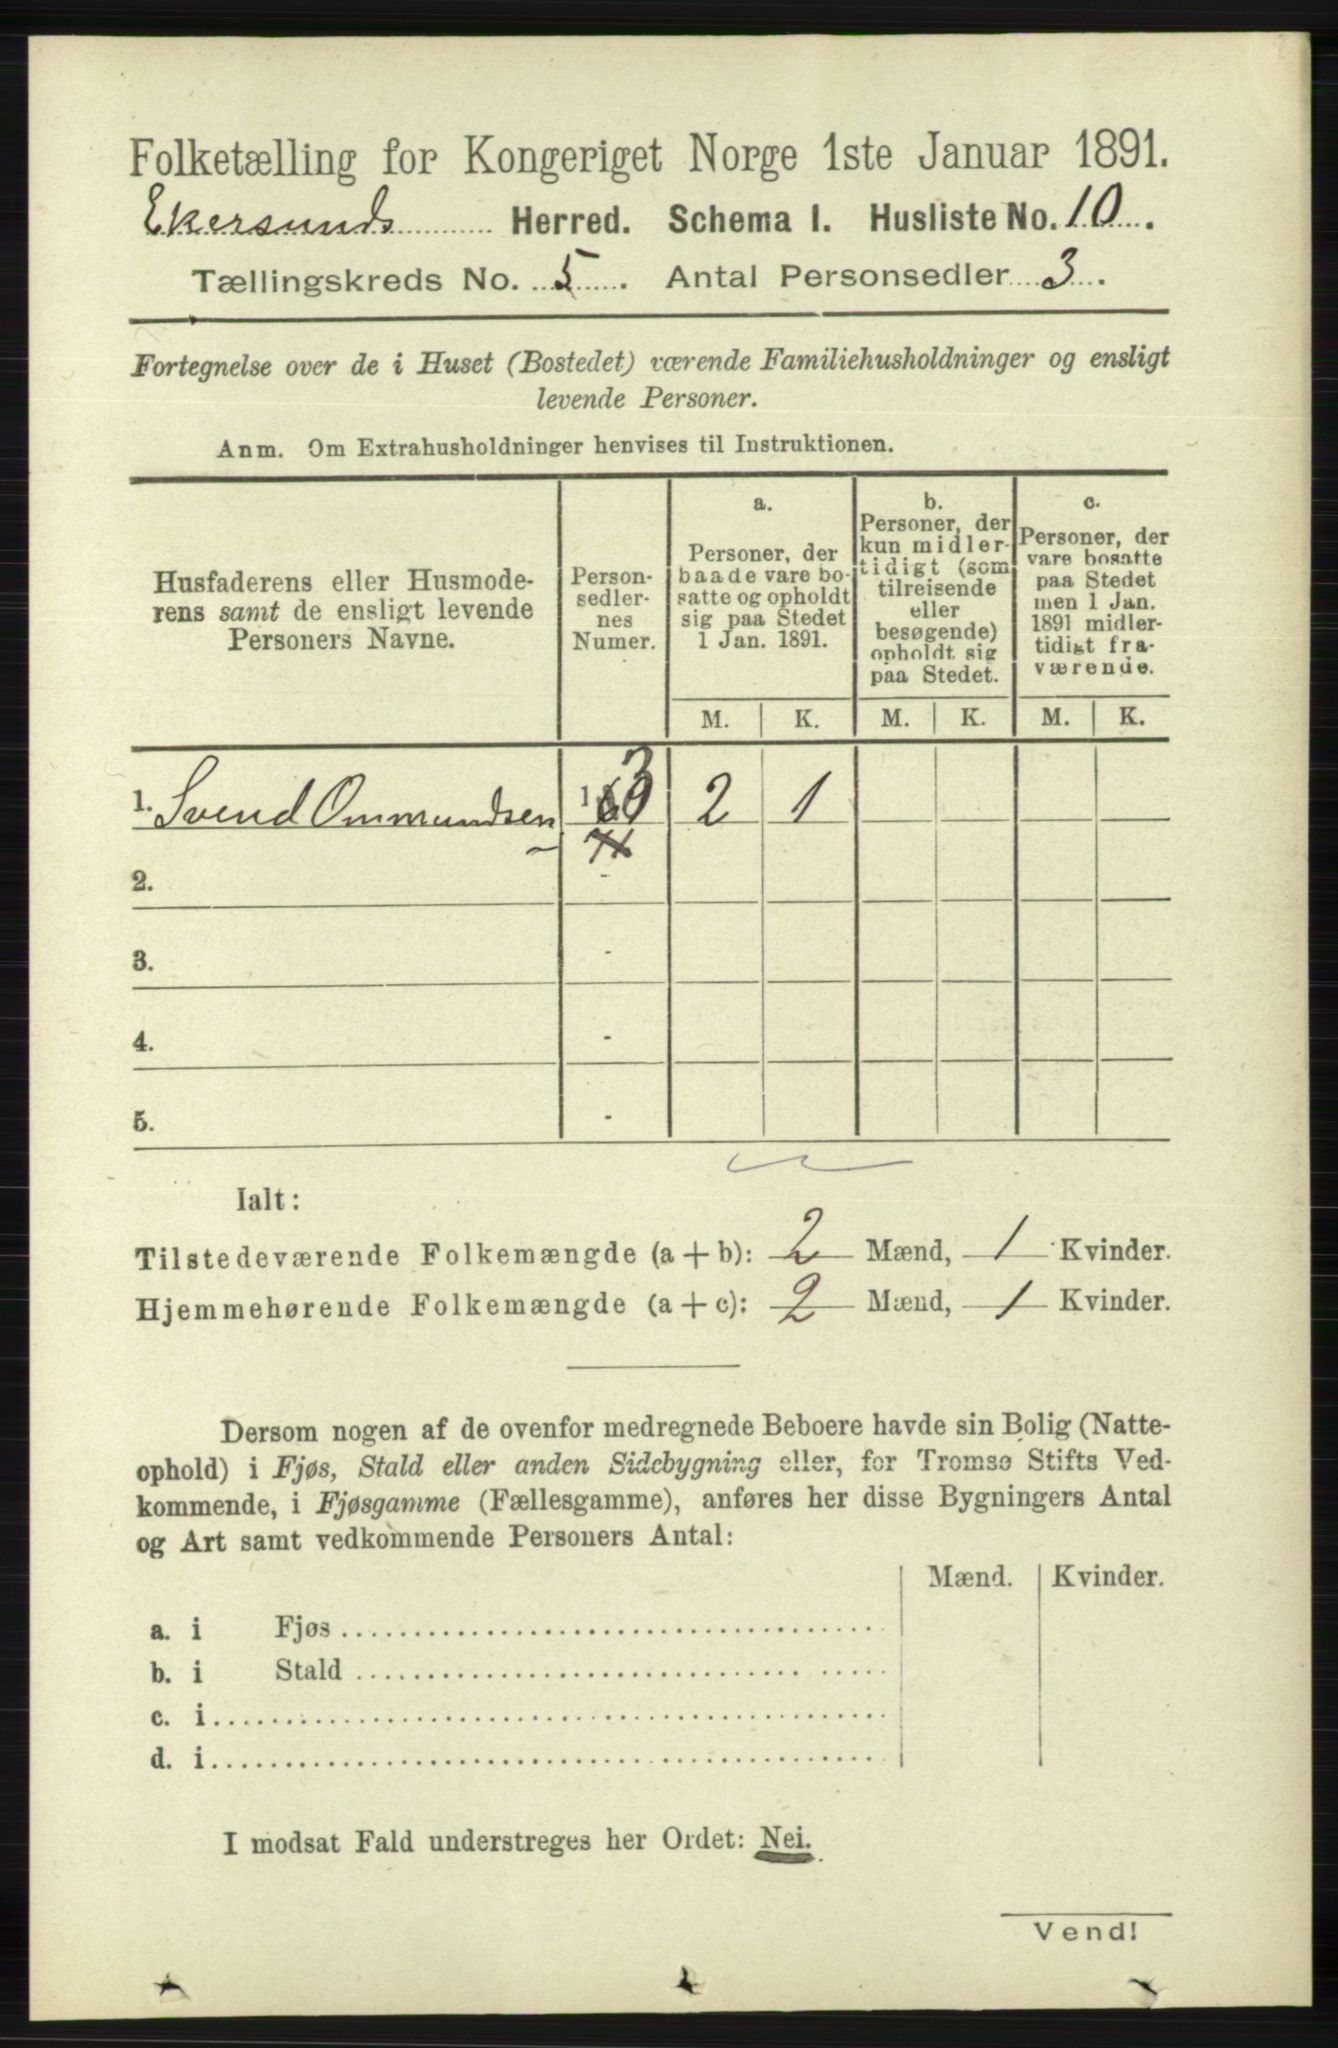 Folketælling for Kongeriget Norge 1ste Januar 1891.
Ekersunds Herred. Schema I. Husliste No. 10.
Tællingskreds No. 5. Antal Personsedler 3.
Fortegnelse over de i Huset (Bostedet) værende Familiehusholdninger og ensligt
levende Personer.
Anm. Om Extrahusholdninger henvises til Instruktionen.
Husfaderens eller Husmode-
rens samt de ensligt levende
Personers Navne.
Person-
sedler-
nes
Numer.
a.
Personer, der
baade vare bo-
satte og opholdt
sig paa Stedet
1 Jan. 1891.
b.
Personer, der
kun midler-
tidigt (som
tilreisende
eller
besøgende)
opholdt sig
paa Stedet.
c.
Personer, der
vare bosatte
paa Stedet
men 1 Jan.
1891 midler-
tidigt fra-
værende.
M. K. M. K. M. K.
1. Svend Ommundsen 1 3 2 1
2. -
3. -
4. -
5. -
Ialt:
Tilstedeværende Folkemængde (a + b): 2 Mænd, 1 Kvinder.
Hjemmehørende Folkemængde (a + c): 2 Mænd, 1 Kvinder.
Dersom nogen af de ovenfor medregnede Beboere havde sin Bolig (Natte-
ophold) i Fjøs, Stald eller anden Sidebygning eller, for Tromsø Stifts Ved-
kommende, i Fjøsgamme (Fællesgamme), anføres her disse Bygningers Antal
og Art samt vedkommende Personers Antal:
Mænd. Kvinder.
a. i Fjøs
b. i Stald
c. i
d. i
I modsat Fald understreges her Ordet: Nei.
Vend!